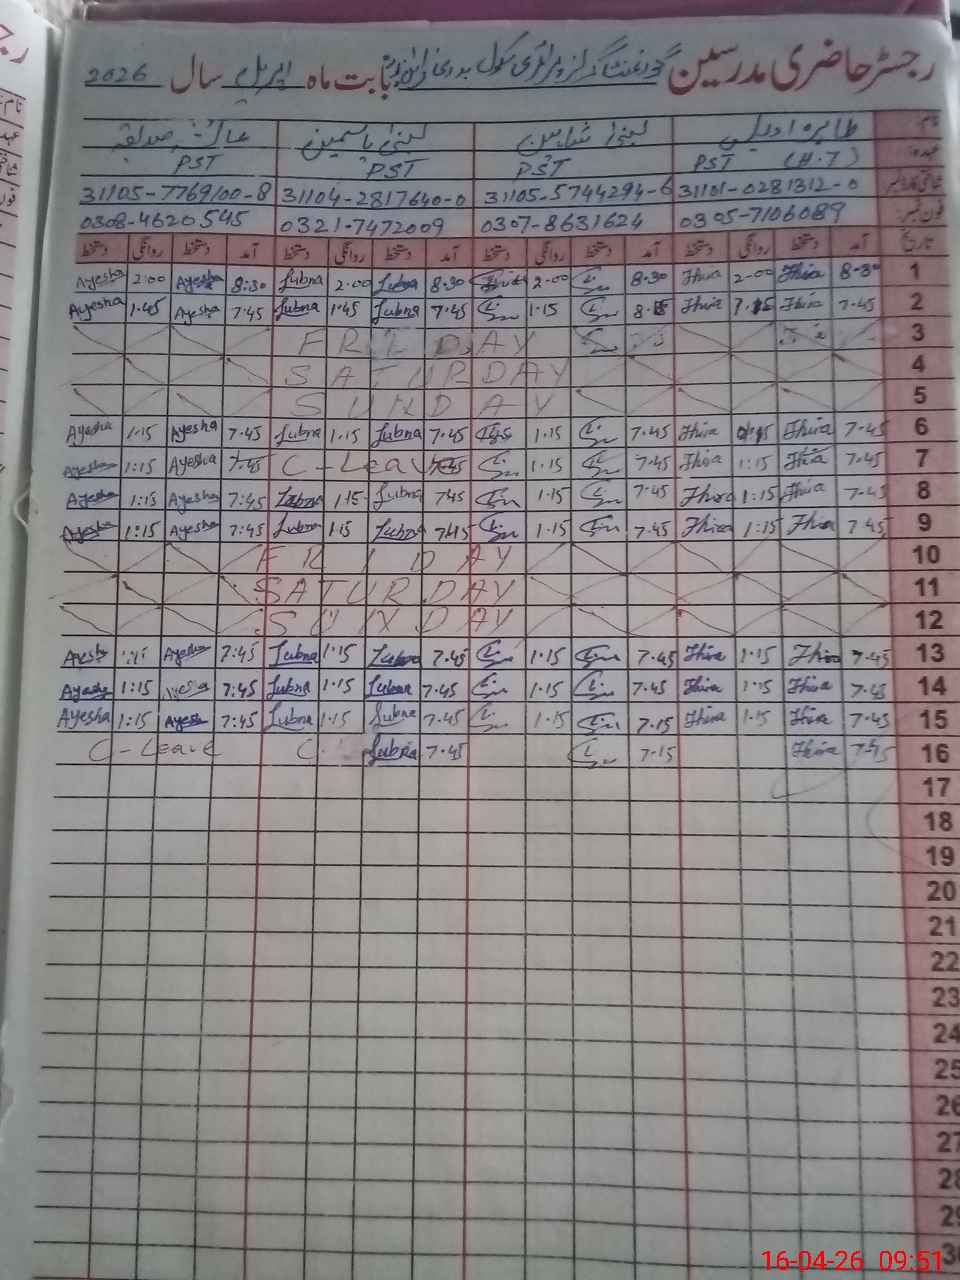 رجسٹر حاضری مدرسین گورنمنٹ گرلز پرائمری سکول بابت ماہ اپریل سال 2026
نام طاہرہ لبنیٰ شاہین لبنیٰ یاسمین عائشہ صدیقہ
عہدہ PST (H.T) PST PST PST
31101-0281312-0 31105-5744294-6 31104-2817640-0 31105-7769100-8
فون نمبر 0305-7106089 0307-8631624 0321-7472009 0308-4620545
تاریخ آمد دستخط روانگی دستخط آمد دستخط روانگی دستخط آمد دستخط روانگی دستخط آمد دستخط روانگی دستخط
1 8-30 Thira 2-00 Thira 8.30 2.00 8.30 Lubna 2.00 Lubna 8:30 Ayesha 2:00 Ayesha
2 7.45 Thira Thira 1.15 7.45 Lubna 1.45 Lubna 7.45 Ayesha 1.45 Ayesha
3 FRIDAY
4 SATURDAY
5 SUNDAY
6 7.45 Thira Thira 7.45 1.15 7.45 Lubna 1.15 Lubna 7.45 Ayesha 1.15 Ayesha
7 7.45 Thira 1:15 Thira 7.45 1.15 C-Leave 7.45 Ayesha 1:15 Ayesha
8 7.45 Thira 1:15 Thira 7.45 1.15 7.45 Lubna 1.15 Lubna 7:45 Ayesha 1:15 Ayesha
9 7.45 Thira 1:15 Thira 7.45 1.15 7.45 Lubna 1.15 Lubna 7:45 Ayesha 1:15 Ayesha
10 FRIDAY
11 SATURDAY
12 SUNDAY
13 7.45 Thira 1.15 Thira 7.45 1.15 7.45 Lubna 1.15 Lubna 7:45 Ayesha Ayesha
14 7.45 Thira 1.15 Thira 7.45 1.15 7.45 Lubna 1.15 Lubna 7:45 Ayesha 1:15 Ayesha
15 7.45 Thira 1.15 Thira 7.15 1.15 7.45 Lubna 1.15 Lubna 7:45 Ayesha 1:15 Ayesha
16 7.45 Thira 7.15 7.45 Lubna C C-Leave
17
18
19
20
21
22
23
24
25
26
27
28
29
30
16-04-26 09:51